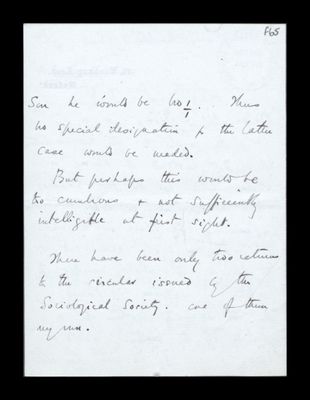 F65
Son he would be No 1/1. Thus
no special designation for the latter
case would be needed.
But perhaps this would be
too cumbrous & not sufficiently
intelligible at first sight.
There have been only two returns
to the circular issued by the
Sociological Society. one of them
my own.